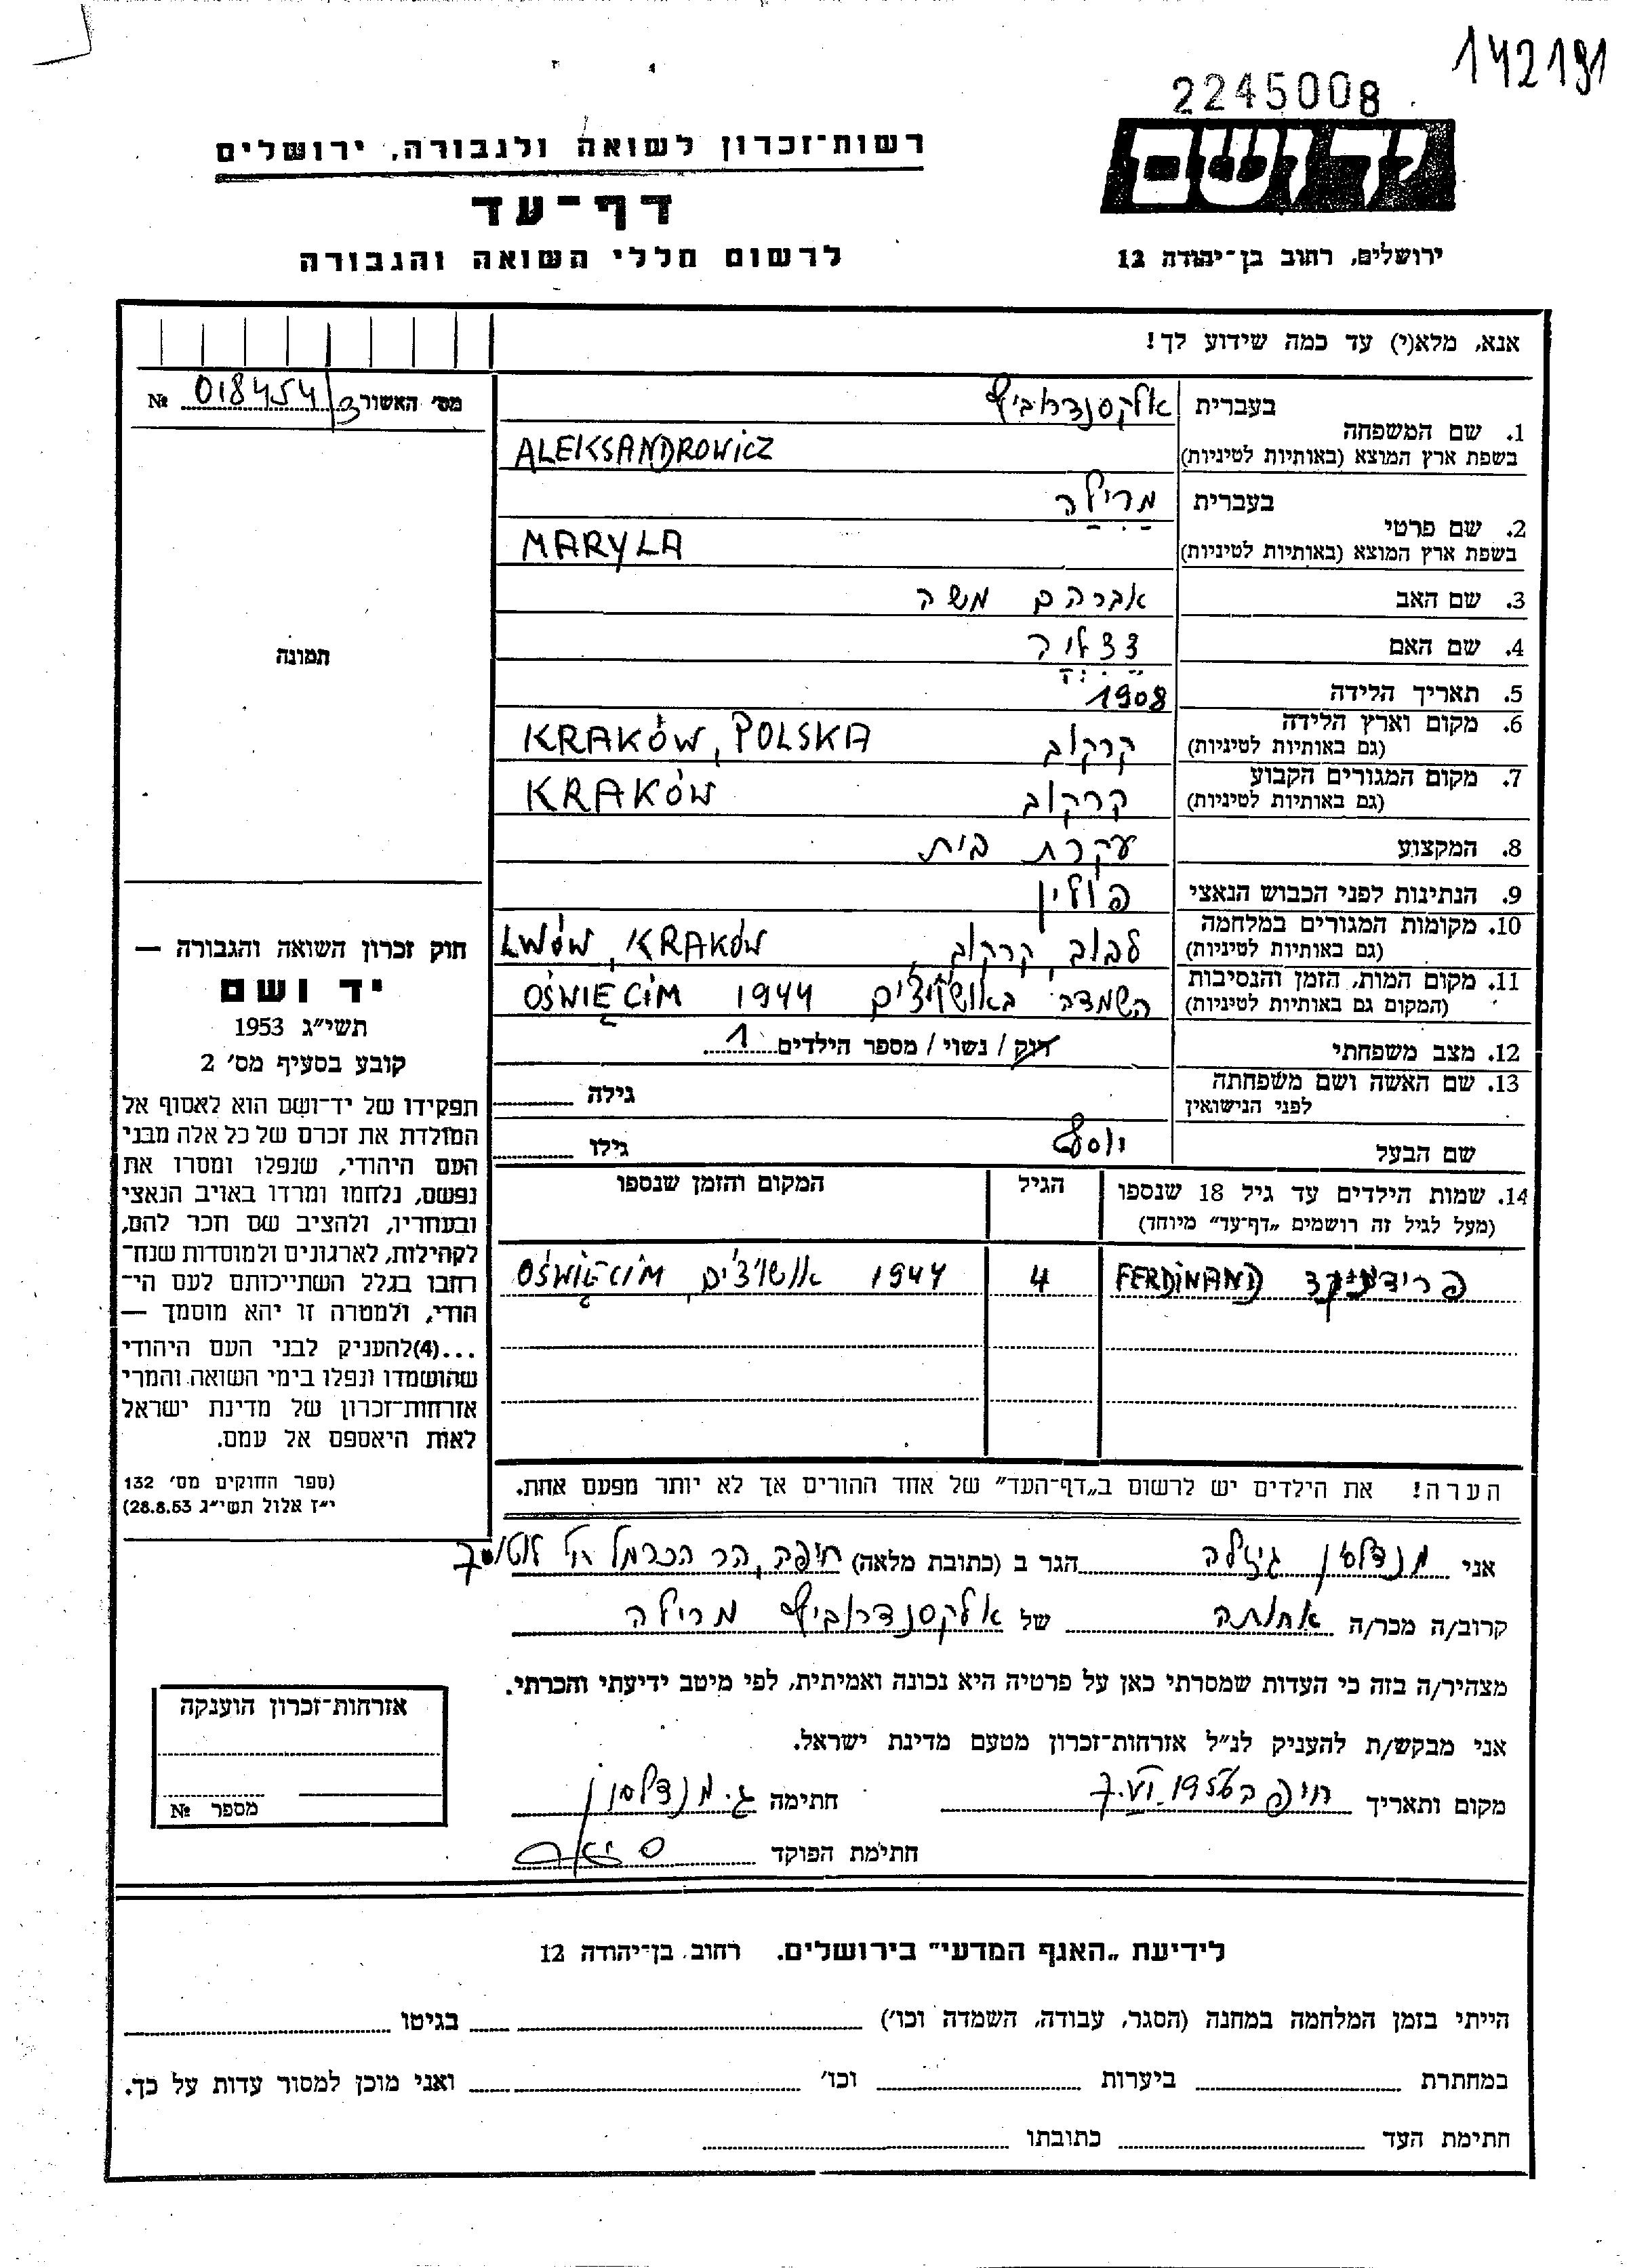 142191
2245008
ידושם
ירושלים, רחוב בן־יהודה 12
רשות־זכרון לשואה ולגבורה, ירושלים
דף־עד
לרשום חללי השואה והגבורה
אנא, מלא(י) עד כמה שידוע לך!
מס' האשור № 018454/3
1. שם המשפחה בעברית אלקסנדרוביץ
בשפת ארץ המוצא (באותיות לטיניות) ALEKSANDROWICZ
2. שם פרטי בעברית מרילה
בשפת ארץ המוצא (באותיות לטיניות) MARYLA
3. שם האב אברהם משה
4. שם האם צצליה
5. תאריך הלידה 1908
6. מקום וארץ הלידה (גם באותיות לטיניות) קרקוב KRAKÓW, POLSKA
7. מקום המגורים הקבוע (גם באותיות לטיניות) קרקוב KRAKÓW
8. המקצוע עקרת בית
9. הנתינות לפני הכבוש הנאצי פולין
10. מקומות המגורים במלחמה (גם באותיות לטיניות) לבוב, קרקוב, LWÓW, KRAKÓW
11. מקום המות, הזמן והנסיבות (המקום גם באותיות לטיניות) השמדה באושויצים 1944 OŚWIĘCIM
12. מצב משפחתי רוק / נשוי / מספר הילדים 1
13. שם האשה ושם משפחתה לפני הנישואין גילה
שם הבעל יוסף גילו
14. שמות הילדים עד גיל 18 שנספו הגיל המקום והזמן שנספו
(מעל לגיל זה רושמים „דף־עד" מיוחד)
FERDINAND 4 1944 אושויצים, OŚWIĘCIM
הערה! את הילדים יש לרשום ב„דף־העד" של אחד ההורים אך לא יותר מפעם אחת.
תמונה
חוק זכרון השואה והגבורה —
יד ושם
תשי"ג 1953
קובע בסעיף מס' 2
תפקידו של יד־ושם הוא לאסוף אל
המולדת את זכרם של כל אלה מבני
העם היהודי, שנפלו ומסרו את
נפשם, נלחמו ומרדו באויב הנאצי
ובעוזריו, ולהציב שם וזכר להם,
לקהילות, לארגונים ולמוסדות שנח־
רבו בגלל השתייכותם לעם הי־
הודי, ולמטרה זו יהא מוסמך —
...(4)להעניק לבני העם היהודי
שהושמדו ונפלו בימי השואה והמרי
אזרחות־זכרון של מדינת ישראל
לאות היאספם אל עמם.
(ספר החוקים מס' 132
י"ז אלול תשי"ג 28.8.53)
אני מנדלסון גיזלה הגר ב (כתובת מלאה) חיפה, הר הכרמל
קרוב/ה מכר/ה אחותה של אלקסנדרוביץ מרילה
מצהיר/ה בזה כי העדות שמסרתי כאן על פרטיה היא נכונה ואמיתית, לפי מיטב ידיעתי והכרתי.
אני מבקש/ת להעניק לנ"ל אזרחות־זכרון מטעם מדינת ישראל.
מקום ותאריך חיפה 7.VI.1956 חתימה ג. מנדלסון
חתימת הפוקד
אזרחות־זכרון הוענקה
מספר №
לידיעת „האגף המדעי" בירושלים. רחוב בן־יהודה 12
הייתי בזמן המלחמה במחנה (הסגר, עבודה, השמדה וכו') בגיטו
במחתרת ביערות וכו' ואני מוכן למסור עדות על כך.
חתימת העד כתובתו